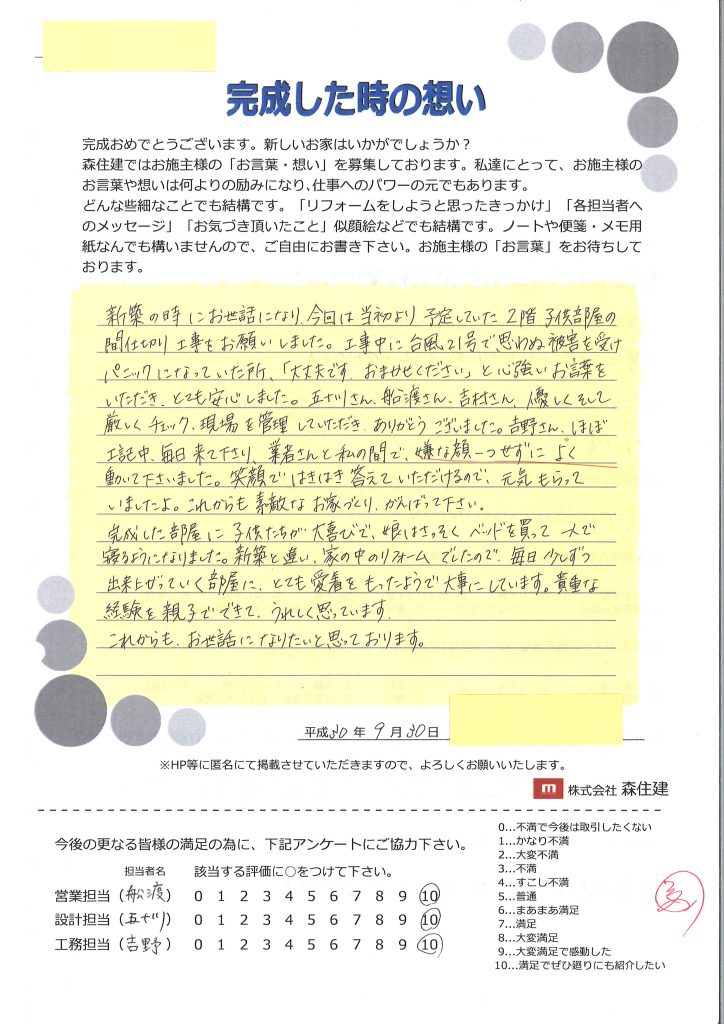 完成した時の想い
完成おめでとうございます。新しいお家はいかがでしょうか？
森住建ではお施主様の「お言葉・想い」を募集しております。私達にとって、お施主様の
お言葉や想いは何よりの励みになり、仕事へのパワーの元でもあります。
どんな些細なことでも結構です。「リフォームをしようと思ったきっかけ」「各担当者へ
のメッセージ」「お気づき頂いたこと」似顔絵などでも結構です。ノートや便箋・メモ用
紙なんでも構いませんので、ご自由にお書き下さい。お施主様の「お言葉」をお待ちして
おります。
新築の時にお世話になり、今回は当初より予定していた2階子供部屋の
間仕切り工事をお願いしました。工事中に台風21号で思わぬ被害を受け
パニックになっていた所、「大丈夫です。おまかせください」と心強いお言葉を
いただき、とても安心しました。五十川さん、船渡さん、吉村さん、優しくそして
厳しくチェック、現場を管理していただき、ありがとうございました。吉野さん、ほぼ
工記中、毎日来て下さり、業者さんと私の間で、嫌な顔一つせずに よく
動いて下さいました。笑顔ではきはき答えていただけるので、元気もらって
いましたよ。これからも素敵なお家づくり、がんばって下さい。
完成した部屋に子供たちが大喜びで、娘はさっそくベッドを買って一人で
寝るようになりました。新築と違い、家の中のリフォームでしたので、毎日少しずつ
出来上がっていく部屋に、とても愛着をもったようで大事にしています。貴重な
経験を親子でできて、うれしく思っています。
これからも、お世話になりたいと思っております。
平成30年 9月30日
※HP等に匿名にて掲載させていただきますので、よろしくお願いいたします。
m 株式会社 森住建
今後の更なる皆様の満足の為に、下記アンケートにご協力下さい。
担当者名 該当する評価に○をつけて下さい。
営業担当（船渡） 0 1 2 3 4 5 6 7 8 9 10
設計担当（五十川） 0 1 2 3 4 5 6 7 8 9 10
工務担当（吉野） 0 1 2 3 4 5 6 7 8 9 10
0…不満で今後は取引したくない
1…かなり不満
2…大変不満
3…不満
4…すこし不満
5…普通
6…まあまあ満足
7…満足
8…大変満足
9…大変満足で感動した
10…満足でぜひ廻りにも紹介したい